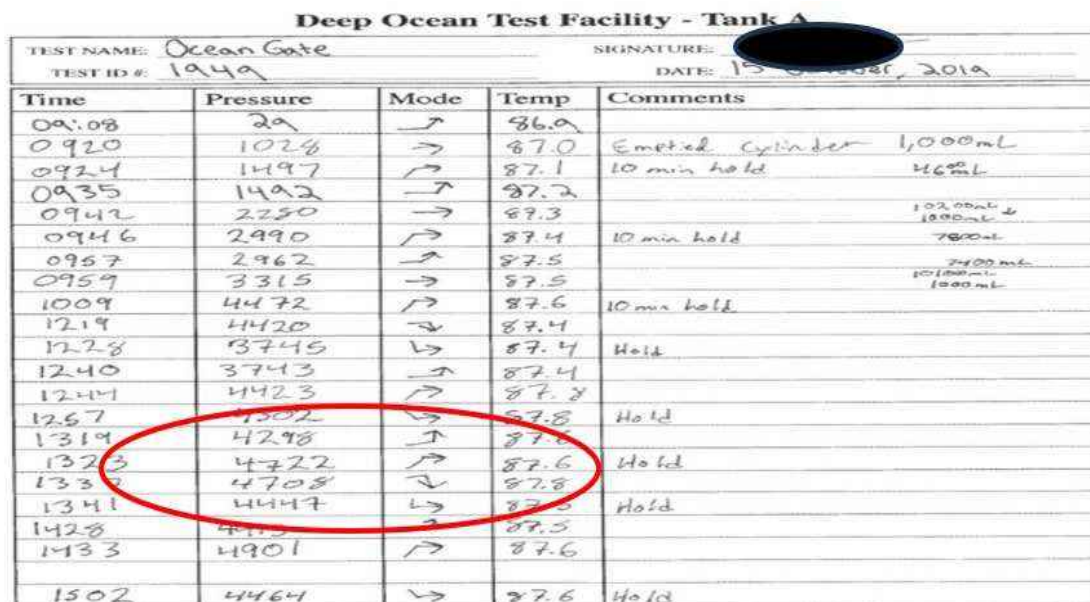 Deep Ocean Test Facility - Tank A
TEST NAME: Ocean Gate SIGNATURE:
TEST ID #: 1949 DATE: 15 2019
Time Pressure Mode Temp Comments
09:08 29 ↗ 86.9
0920 1028 → 87.0 Emptied Cylinder 1,000mL
0924 1497 87.1 10 min hold
0935 1492 87.2
0942 → 87.3 1000mL
0946 2990 87.4 10 min hold
0957 2962 87.5 7400 mL
0959 3315 → 87.5 1000mL
1009 4472 87.6 10 min hold
1219 4420 87.4
1228 3745 87.4 Hold
1240 3743 87.4
1244 4423 87.8
1257 4302 87.8 Hold
1319 4298
1323 4722 87.6 Hold
4708 87.8
1341 4447 Hold
1428 87.5
1433 4901 87.6
1502 4464 87.6 Hold